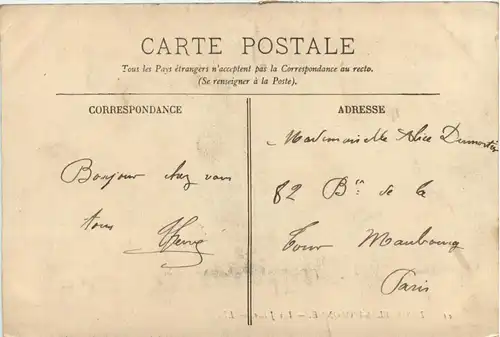 CARTE POSTALE
Tous les Pays étrangers n'acceptent pas la Correspondance au recto.
(Se renseigner à la Poste).
CORRESPONDANCE
Bonjour chez vous
tous
Hervé
ADRESSE
Mademoiselle Alice Dumortier
82 Bd de la
Tour Maubourg
Paris